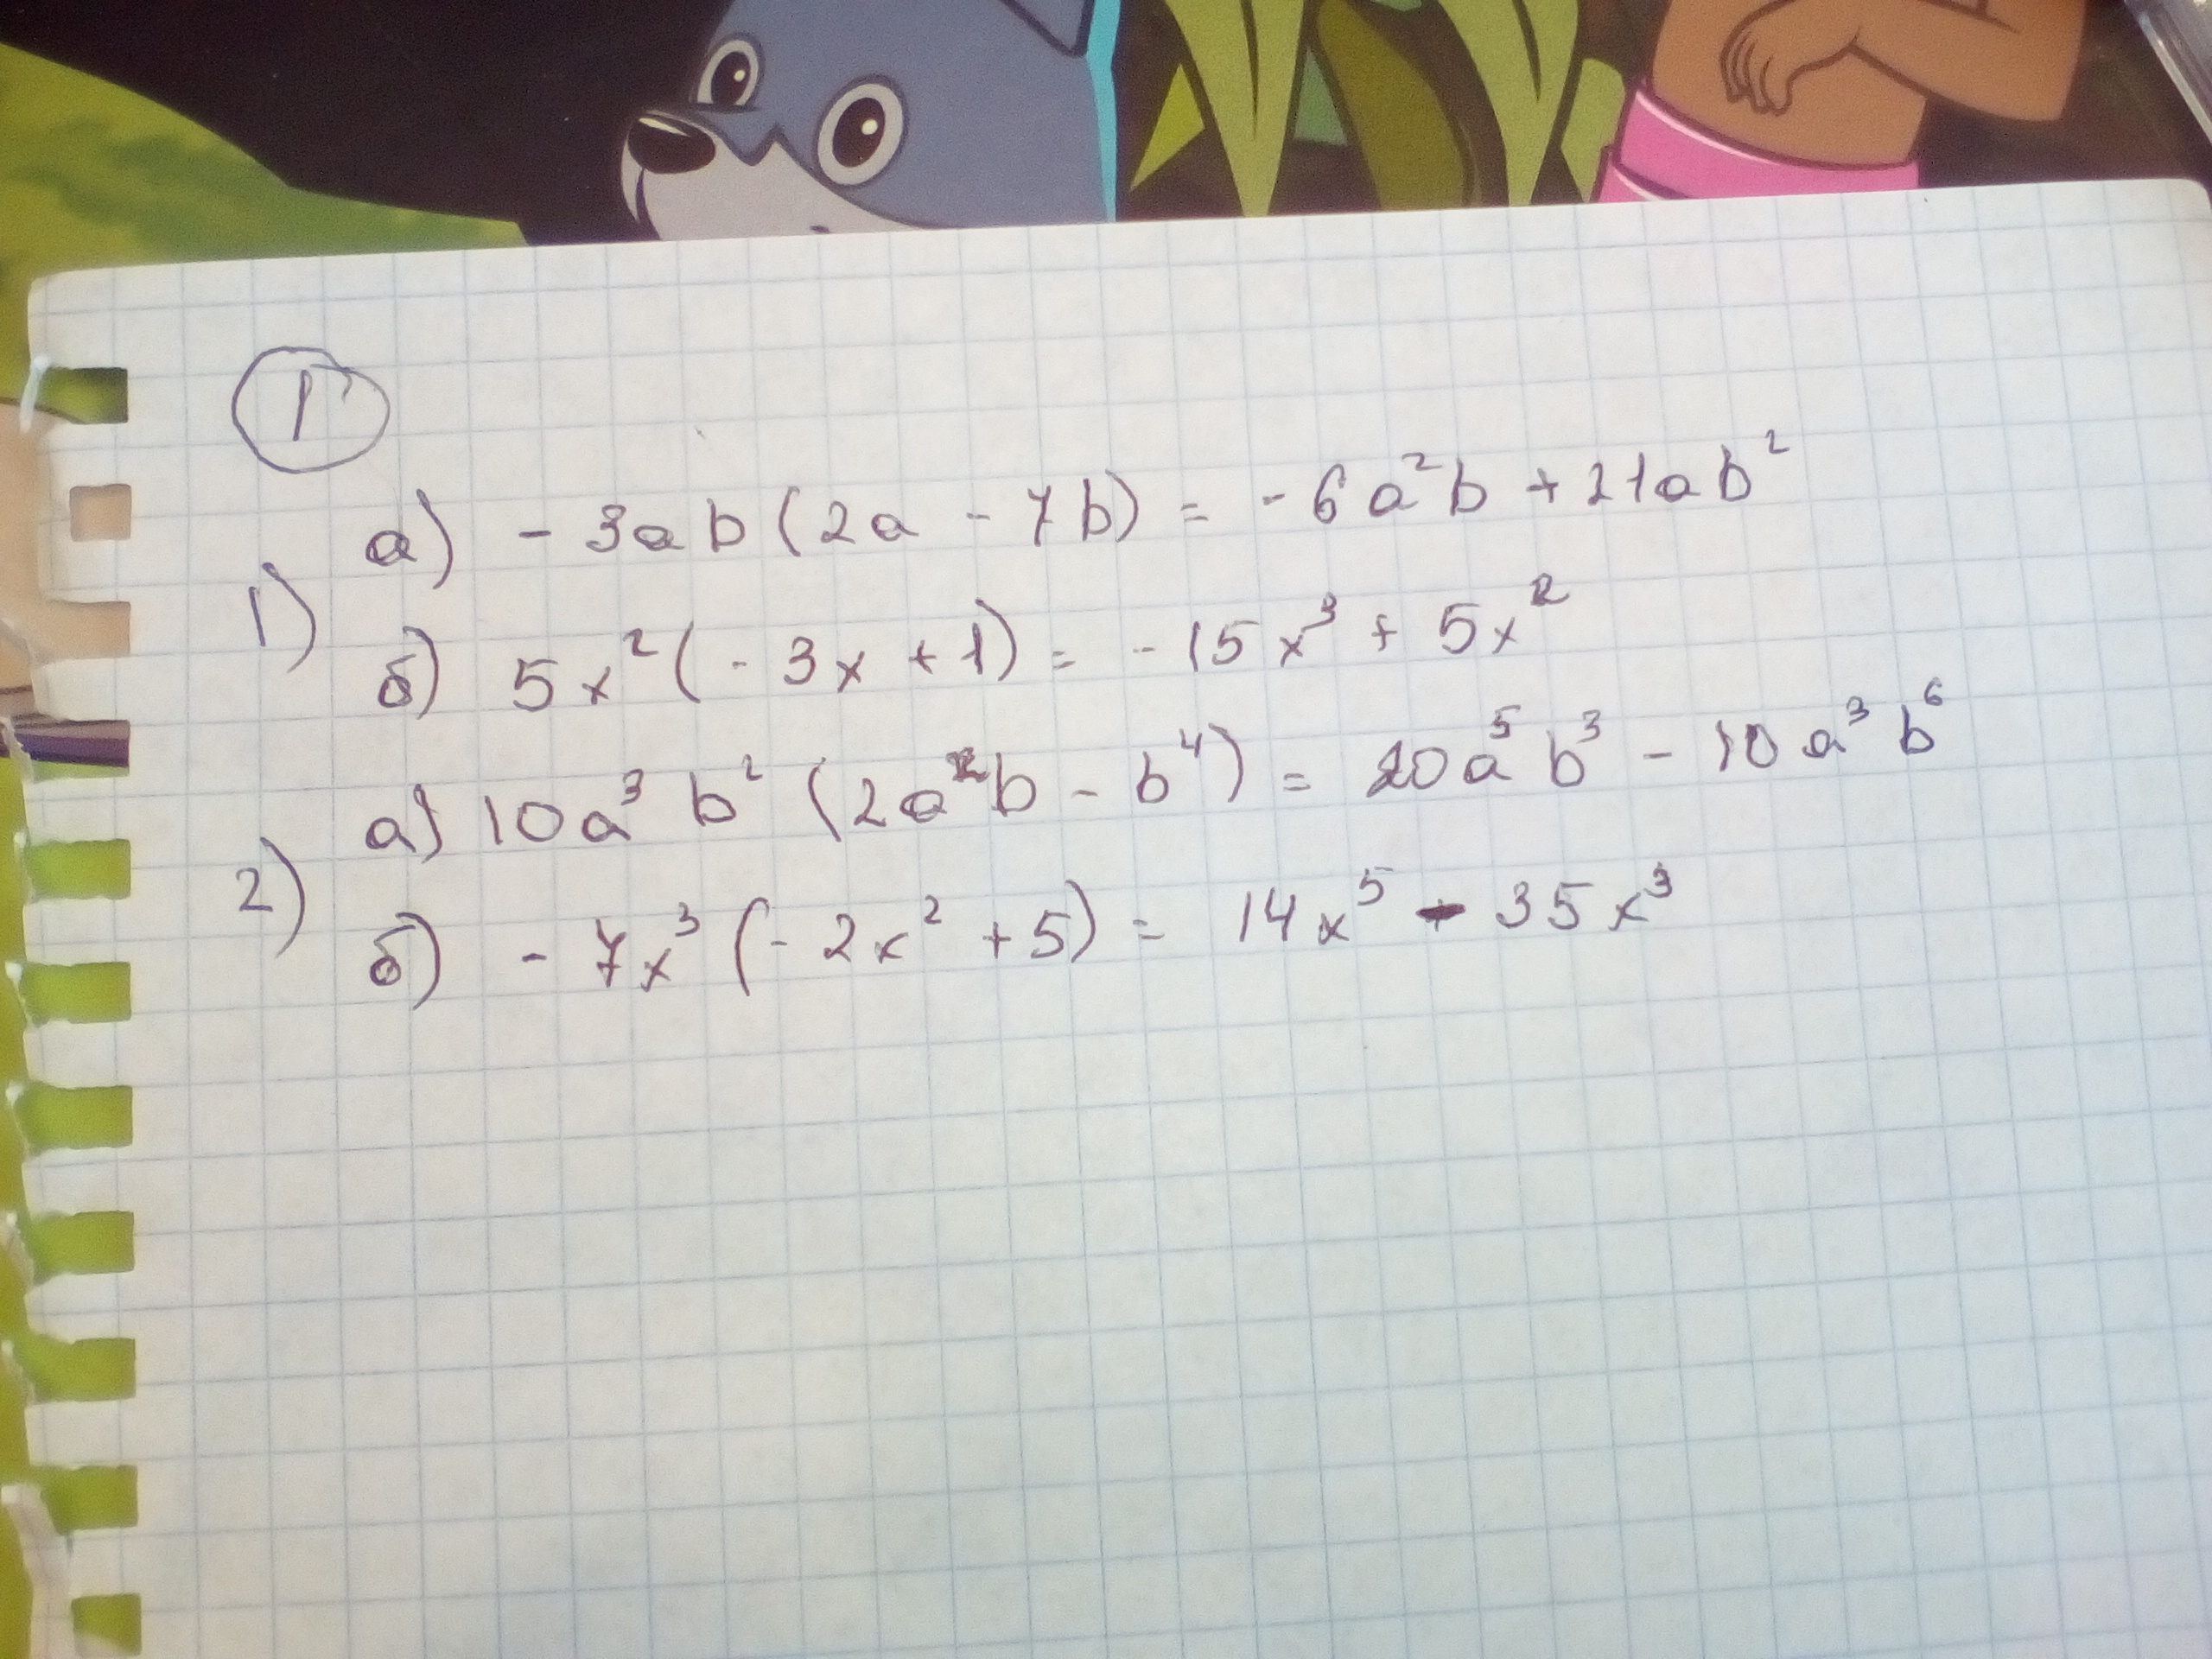 1
а) - 3ab (2a - 7b) = - 6a²b + 21ab²
1)
б) 5x² (- 3x + 1) = - 15x³ + 5x²
а) 10a³ b² (2a²b - b⁴) = 20a⁵ b³ - 10a³ b⁶
2)
б) - 7x³ (- 2x² + 5) = 14x⁵ - 35x³